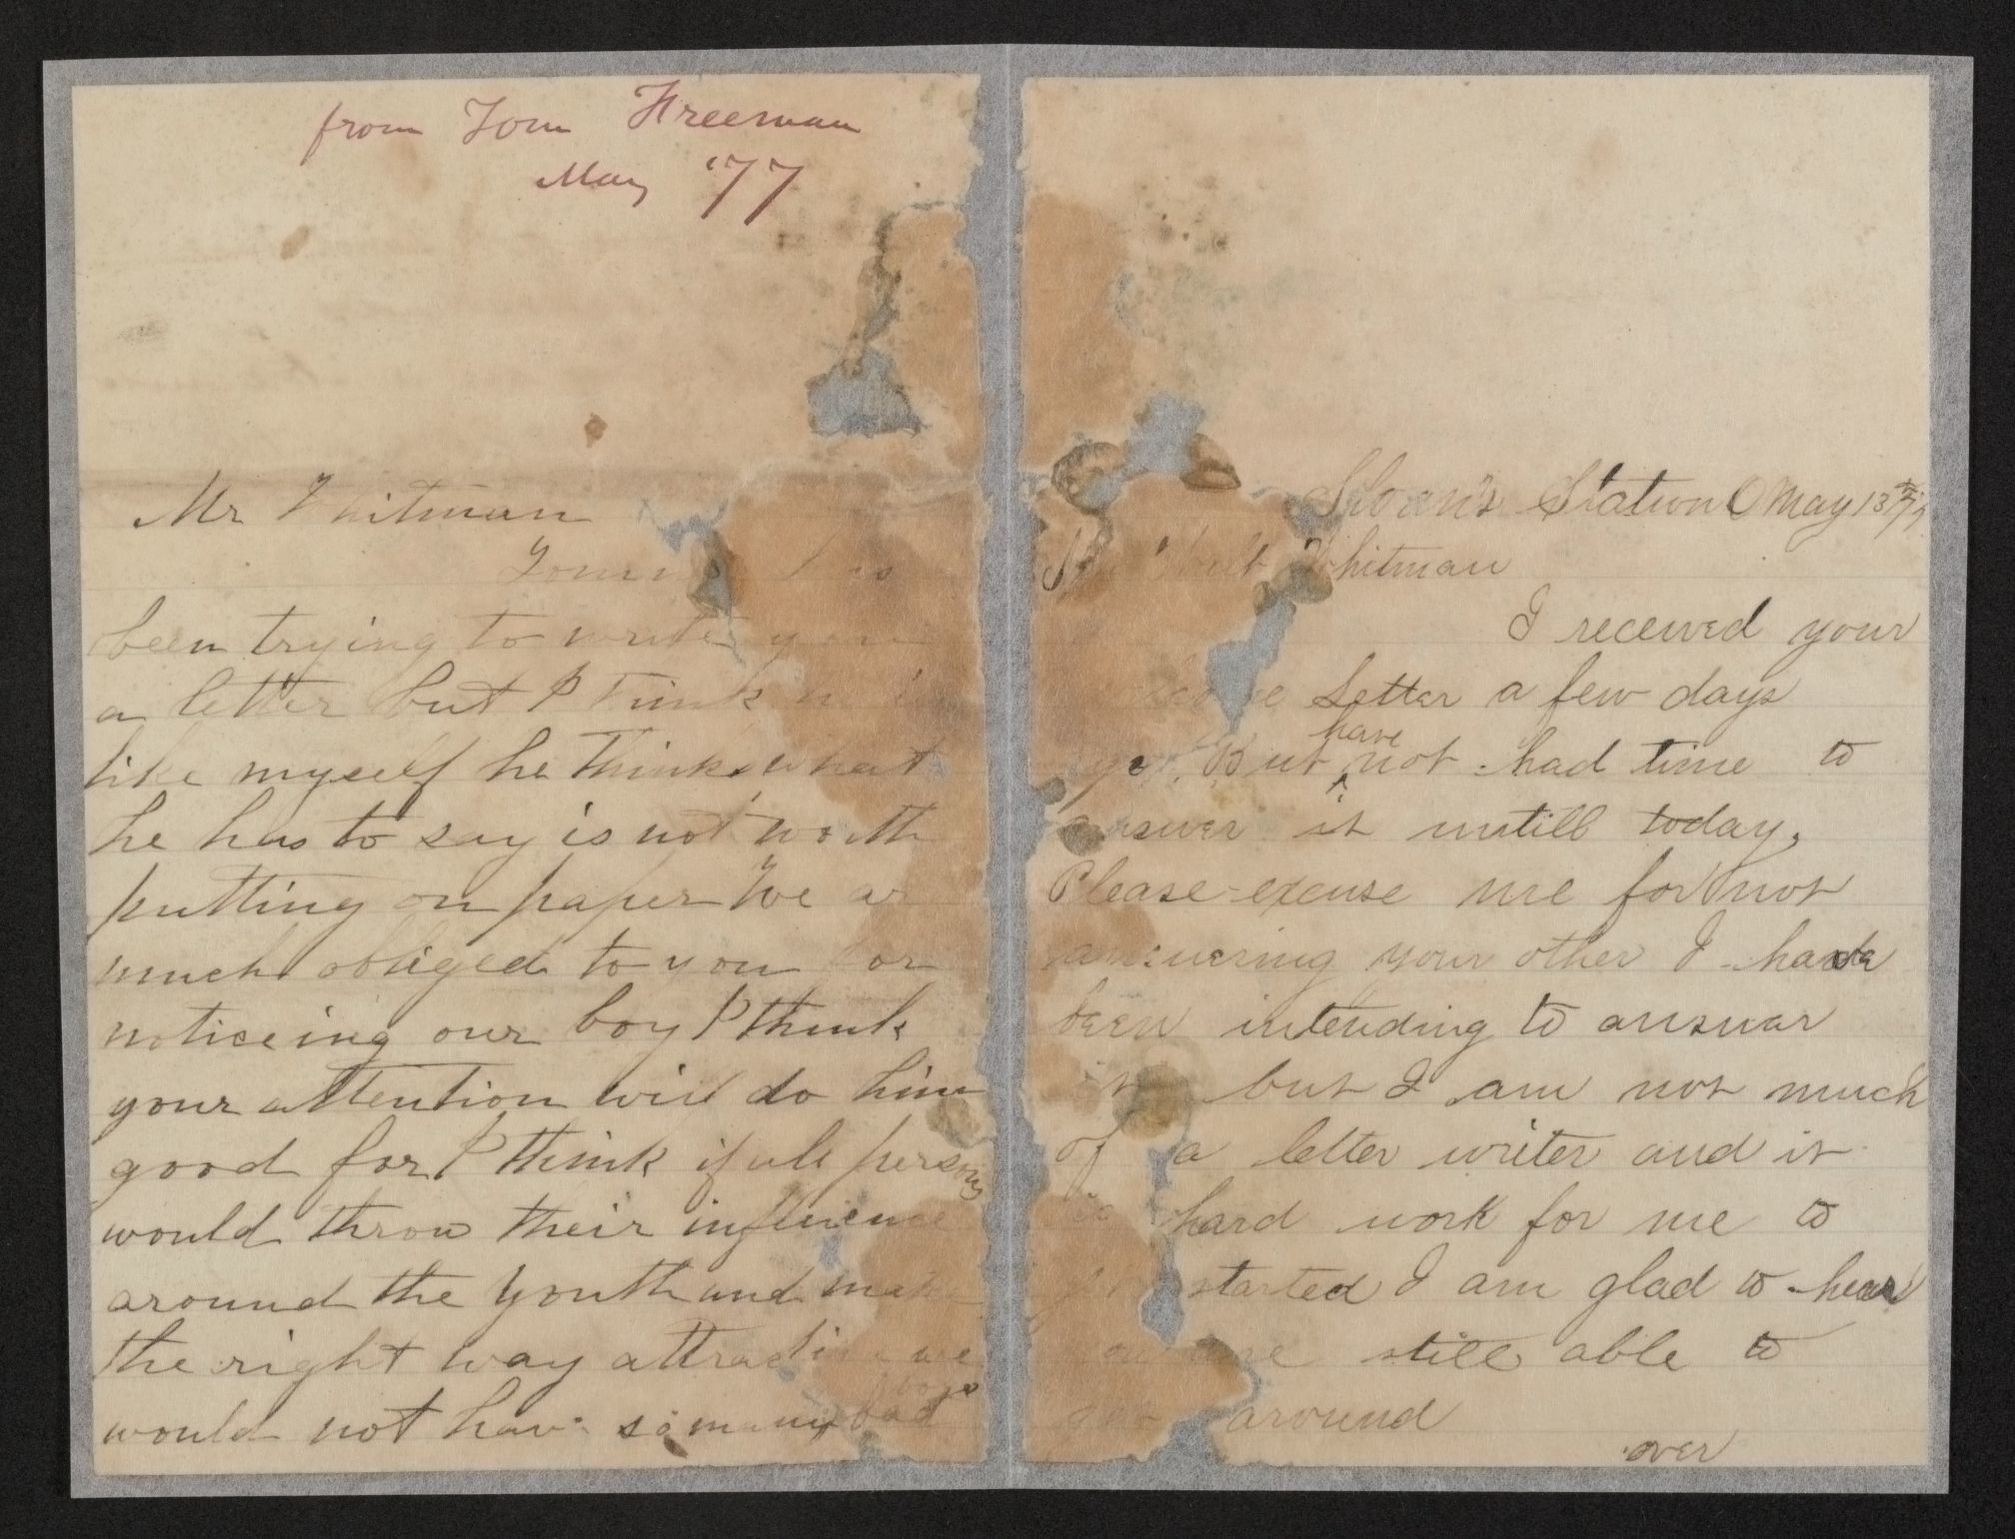 from Tom Freeman
May '77
Mr Whitman
been trying to write you
a letter but I think
like myself he thinks what
he has to say is not worth
putting on paper We ar
much obliged to you for
noticeing our boy I think
your attention will do him
good for I think if all persons
would throw their influence
around the youth and make
the right way attractive we
would not have so many bad boys
Sloan's Station O May 13th 77
Walt Whitman
I received your
Letter a few days
ago. But have not had time to
answer it untill today,
Please excuse me for not
answering your other I have
been intending to answar
it but I am not much
of a letter writer and it
is hard work for me to
started I am glad to hear
you are still able to
get around
over